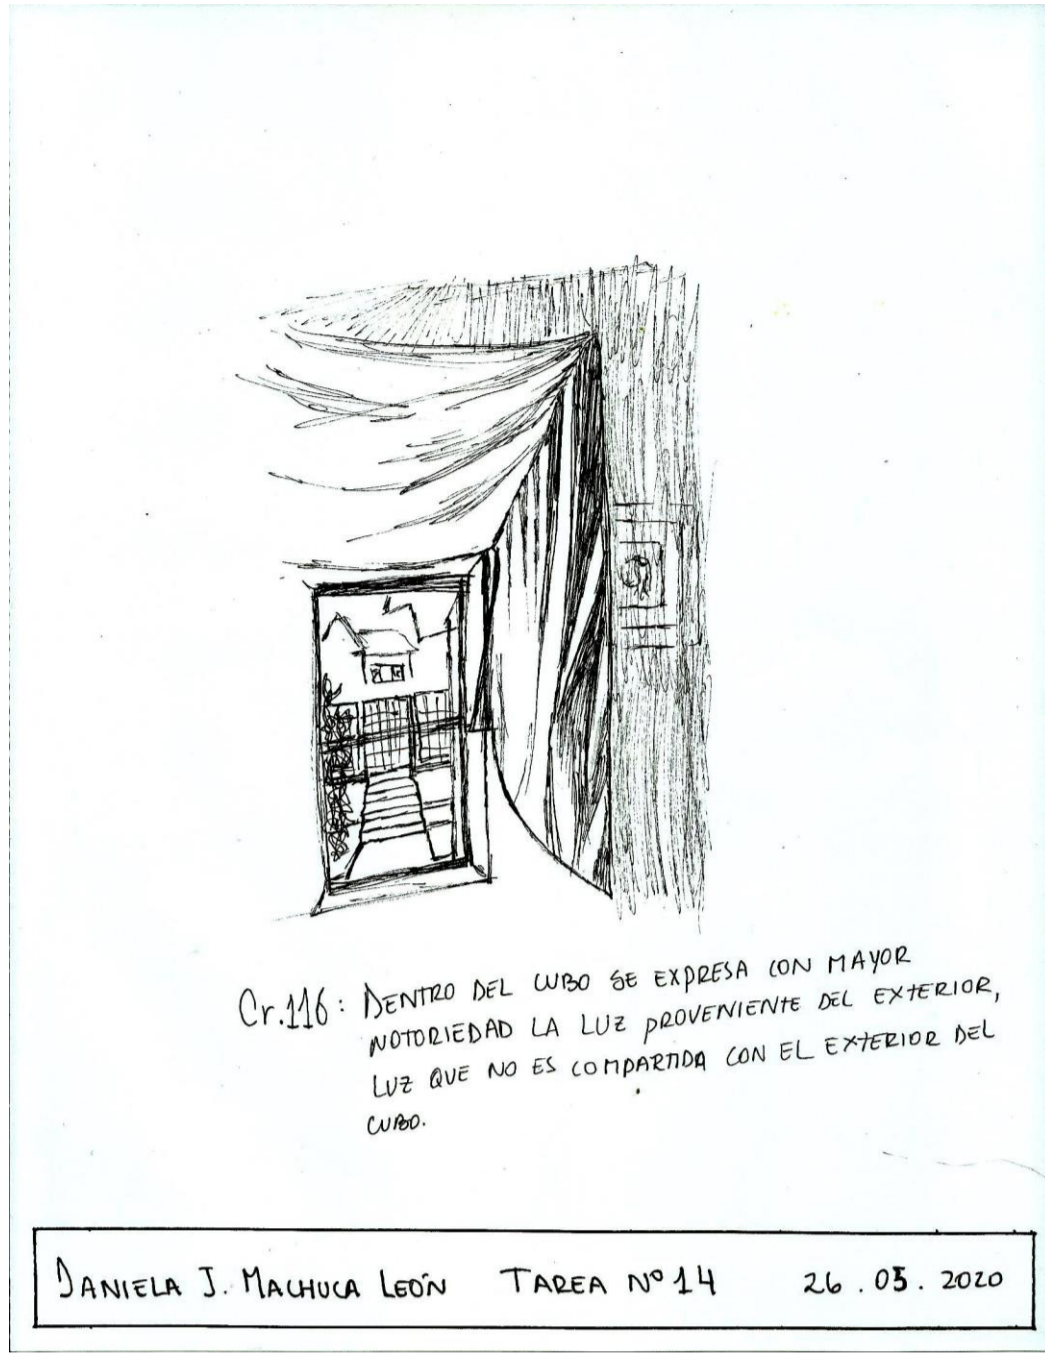 Cr.116: DENTRO DEL CUBO SE EXPRESA CON MAYOR
NOTORIEDAD LA LUZ PROVENIENTE DEL EXTERIOR,
LUZ QUE NO ES COMPARTIDA CON EL EXTERIOR DEL
CUBO.
DANIELA J. MACHUCA LEÓN TAREA Nº 14 26.05.2020